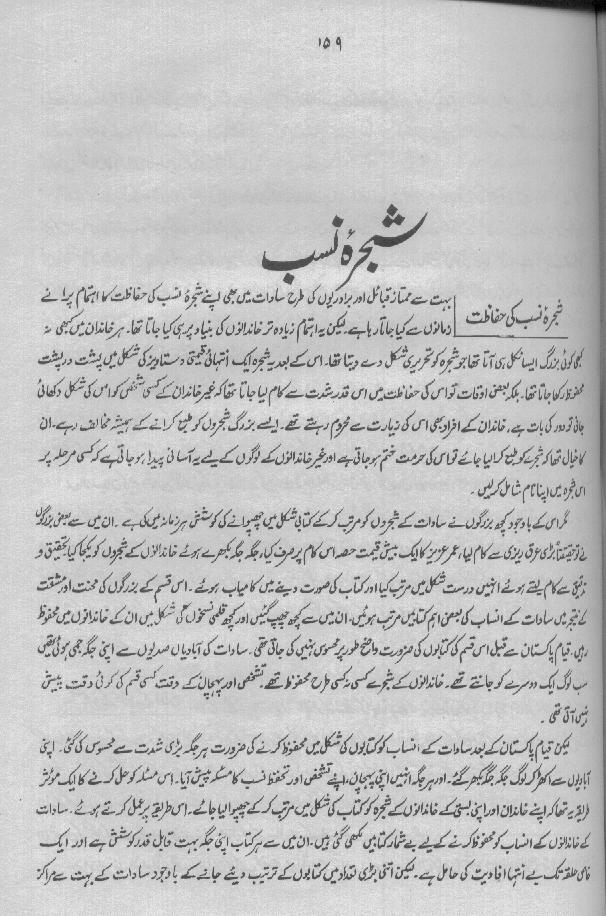 ۱۵۹
شجرۂ نسب
شجرۂ نسب کی حفاظت
بہت سے ممتاز قبائل اور برادریوں کی طرح سادات میں بھی اپنے شجرۂ نسب کی حفاظت کا اہتمام پرانے
زمانوں سے کیا جاتا رہا ہے۔ لیکن یہ اہتمام زیادہ تر خاندانوں کی بنیاد پر ہی کیا جاتا تھا۔ ہر خاندان میں کبھی نہ
کبھی کوئی بزرگ ایسا نکل ہی آتا تھا جو شجرہ کو تحریری شکل دے دیتا تھا۔ اس کے بعد یہ شجرہ ایک انتہائی قیمتی دستاویز کی شکل میں پشت در پشت
محفوظ رکھا جاتا تھا۔ بلکہ بعض اوقات تو اس کی حفاظت میں اس قدر شدت سے کام لیا جاتا تھا کہ غیر خاندان کے کسی شخص کو اس کی شکل دکھائی
جانی تو دور کی بات ہے، خاندان کے افراد بھی اس کی زیارت سے محروم رہتے تھے۔ ایسے بزرگ شجروں کو طبع کرانے کے ہمیشہ مخالف رہے۔ ان
کا خیال تھا کہ شجرے کو طبع کرا لیا جائے تو اس کی حرمت ختم ہو جاتی ہے اور غیر خاندانوں کے لوگوں کے لیے یہ آسانی پیدا ہو جاتی ہے کہ کسی مرحلہ پر
اس شجرہ میں اپنا نام شامل کر لیں۔
مگر اس کے باوجود کچھ بزرگوں نے سادات کے شجروں کو مرتب کر کے کتابی شکل میں چھپوانے کی کوشش ہر زمانہ میں کی ہے۔ ان میں سے بعض بزرگوں
نے تو حقیقتاً بڑی عرق ریزی سے کام لیا، عمر عزیز کا ایک بیش قیمت حصہ اس کام پر صرف کیا، جگہ جگہ بکھرے ہوئے خاندانوں کے شجروں کو یکجا کیا تحقیق و
تدقیق سے کام لیتے ہوئے انہیں درست شکل میں مرتب کیا اور کتاب کی صورت دینے میں کامیاب ہوئے۔ اس قسم کے بزرگوں کی محنت اور مشقت
کے نتیجہ میں سادات کے انساب کی بعض اہم کتابیں مرتب ہوئیں۔ ان میں سے کچھ چھپ گئیں اور کچھ قلمی نسخوں کی شکل میں ان کے خاندانوں میں محفوظ
رہیں۔ قیام پاکستان سے قبل اس قسم کی کتابوں کی ضرورت واضح طور پر محسوس نہیں کی جاتی تھی۔ سادات کی آبادیاں صدیوں سے اپنی جگہ جمی ہوئی تھیں
سب لوگ ایک دوسرے کو جانتے تھے۔ خاندانوں کے شجرے کسی نہ کسی طرح محفوظ تھے۔ تشخص اور پہچان کے وقت کسی قسم کی کوئی دقت پیش
نہیں آتی تھی۔
لیکن قیام پاکستان کے بعد سادات کے انساب کو کتابوں کی شکل میں محفوظ کرنے کی ضرورت ہر جگہ بڑی شدت سے محسوس کی گئی۔ اپنی
آبادیوں سے اکھڑ کر لوگ جگہ جگہ بکھر گئے۔ اور ہر جگہ انہیں اپنی پہچان، اپنے تشخص اور تحفظ نسب کا مسئلہ پیش آیا۔ اس مسئلہ کو حل کرنے کا ایک مؤثر
طریقہ یہ تھا کہ اپنے خاندان اور اپنی بستی کے خاندانوں کے شجرہ کو کتاب کی شکل میں مرتب کر کے چھپوا لیا جائے۔ اس طریقہ پر عمل کرتے ہوئے سادات
کے خاندانوں کے انساب کو محفوظ کرنے کے لیے بے شمار کتابیں لکھی گئی ہیں۔ ان میں سے ہر کتاب اپنی جگہ بہت قابل قدر کوشش ہے اور ایک
خاص حلقہ تک بے انتہا افادیت کی حامل ہے۔ لیکن اتنی بڑی تعداد میں کتابوں کے ترتیب دیئے جانے کے باوجود سادات کے بہت سے مراکز